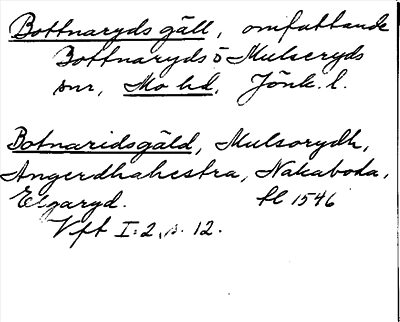 Bottnaryds gäll, omfattande
Bottnaryds o Mulseryds
snr, Mo hd, Jönk. l.
Botnaridsgäld, Mulsorydh,
Angerdhahestra, Nakaboda,
Elgaryd. fl 1546
Vft I:2, s. 12.